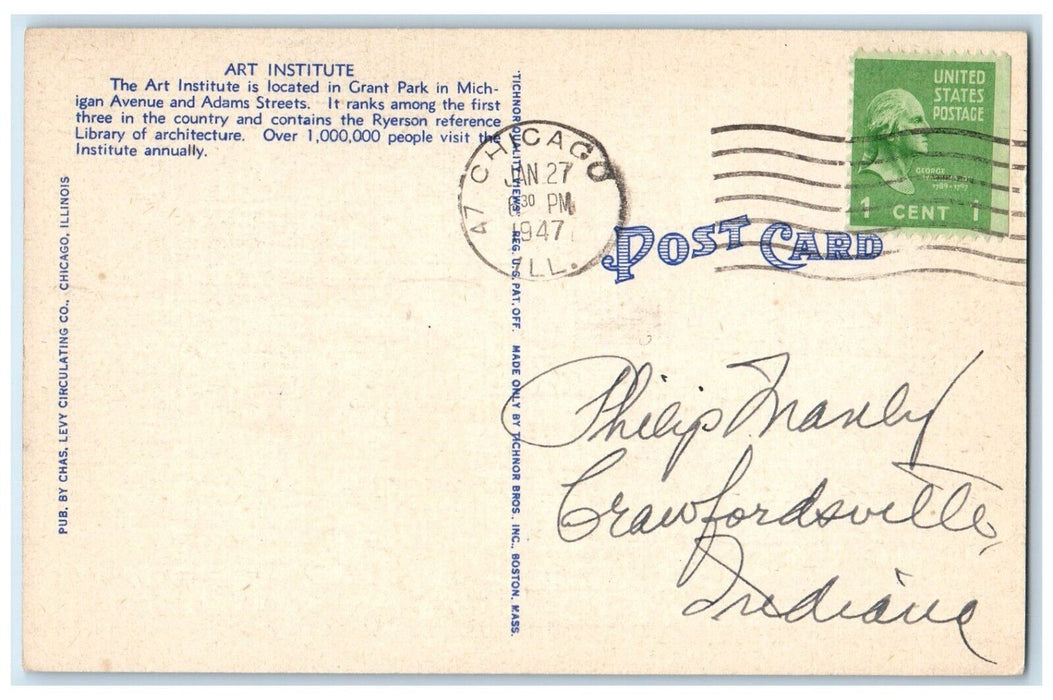 ART INSTITUTE
The Art Institute is located in Grant Park in Mich-
igan Avenue and Adams Streets. It ranks among the first
three in the country and contains the Ryerson reference
Library of architecture. Over 1,000,000 people visit the
Institute annually.
PUB. BY CHAS. LEVY CIRCULATING CO., CHICAGO, ILLINOIS
"TICHNOR QUALITY VIEWS" REG. U. S. PAT. OFF. MADE ONLY BY TICHNOR BROS. INC., BOSTON, MASS.
CHICAGO
47
JAN 27
30 PM
1947
ILL.
UNITED
STATES
POSTAGE
GEORGE
1789-1797
1 CENT 1
POST CARD
Philip Manly
Crawfordsville,
Indiana